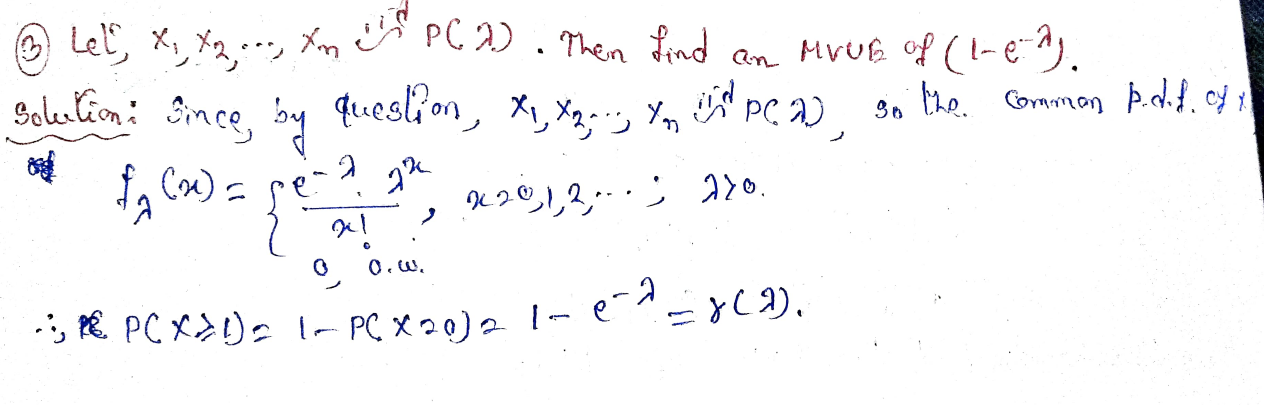 ③ Let, X₁, X₂, ..., Xₙ iid P(λ). Then find an MVUE of (1-e^{-λ}).
Solution: Since, by question, X₁, X₂, ..., Xₙ iid P(λ), so the common p.d.f. of
f_λ(x) = { e^{-λ}. λ^x / x!, x=0,1,2,...; λ>0.
0, o.w.
∴, P(X≥1) = 1-P(X=0) = 1-e^{-λ} = γ(λ).